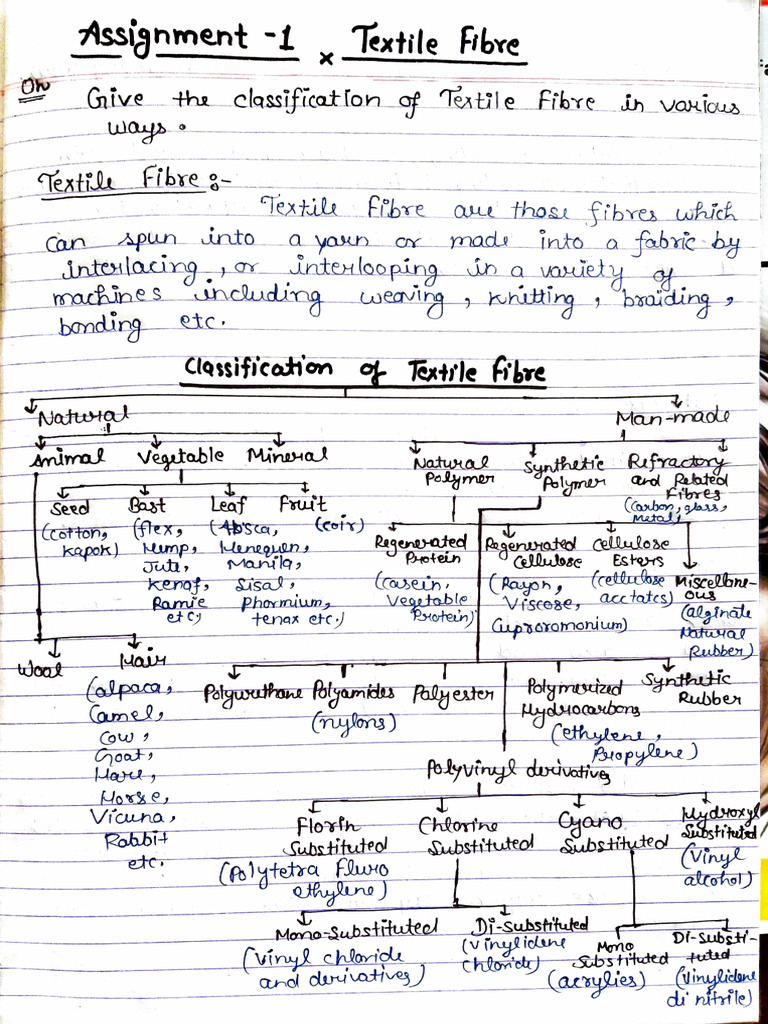 Assignment -1 x Textile Fibre
Give the classification of Textile Fibre in various
ways.
Textile Fibre :-
Textile Fibre are those fibres which
can spun into a yarn or made into a fabric by
interlacing, or interlooping in a variety of
machines including weaving, knitting, braiding,
bonding etc.
Classification of Textile Fibre
Natural
Man-made
Animal Vegetable Mineral
Natural
Polymer
Synthetic
Polymer
Refractory
and Related
Fibres
(carbon, glass,
metal)
Seed
(cotton,
kapok)
Bast
(flex,
Hemp,
Jute,
kenaf,
Ramie
etc,
Leaf
(Absca,
Henequen,
Manila,
Sisal,
Phormium,
tenax etc.)
Fruit
(coir)
Regenerated
Protein
(casein,
Vegetable
Protein)
Regenerated
Cellulose
(Rayon,
Viscose,
Cuproromonium)
Cellulose
Esters
(cellulose
acctates)
Miscellane-
ous
(alginate
Natural
Rubber)
Wool
Hair
(alpaca,
Camel,
Cow,
Goat,
Hare,
Horse,
Vicuna,
Rabbit
etc.
Polyurethane
Polyamides
(nylons)
Polyester
Polymerized
Hydrocarbons
(ethylene,
Propylene)
Synthetic
Rubber
Polyvinyl derivatives
Florin
Substituted
(Polytetra Fluro
ethylene)
Chlorine
Substituted
Cyano
Substituted
Hydroxyl
Substituted
(Vinyl
alcohol)
Mono-Substituted
(Vinyl chloride
and derivatives)
Di-Substituted
(Vinylidene
Chloride)
Mono
Substituted
(acrylies)
Di-Substi-
tuted
(Vinylidene
di nitrile)